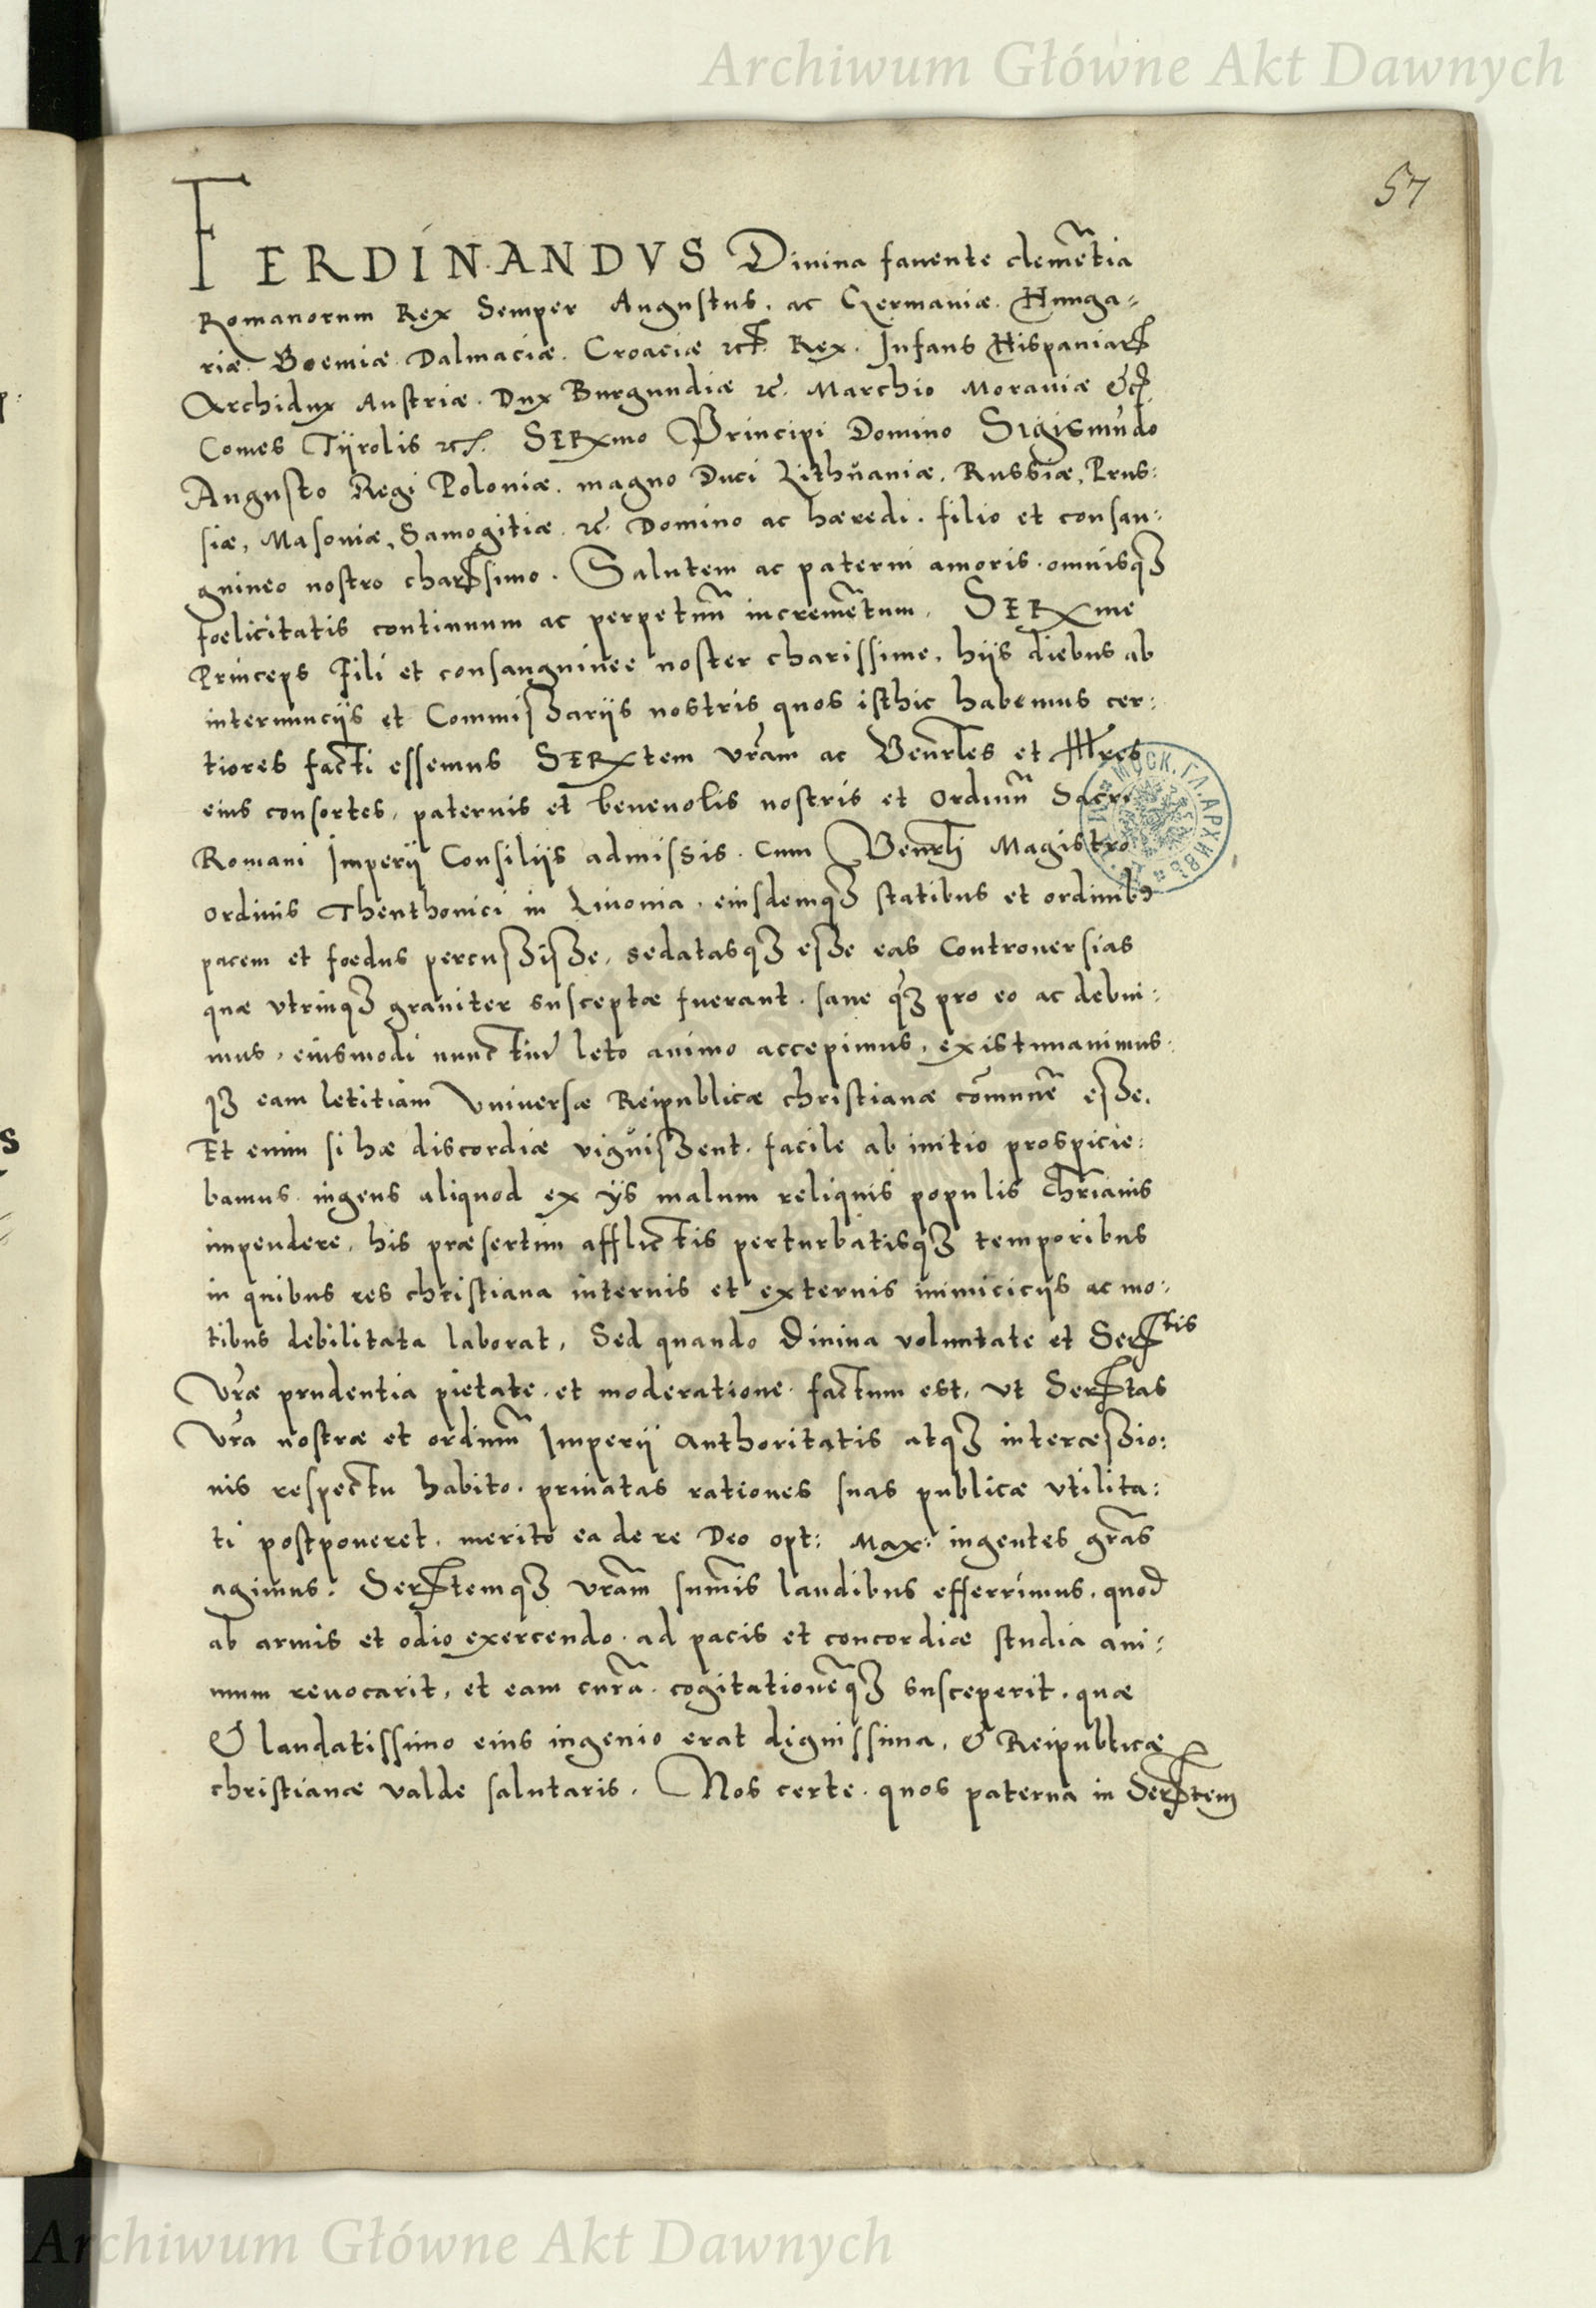 Archiwum Główne Akt Dawnych
57
FERDINANDVS Diuina fauente clemẽtia
Romanorum Rex Semper Augustus, ac Germaniæ. Hunga-
riæ. Boemiæ. Dalmaciæ. Croaciæ etc. Rex. Infans Hispaniar
Archidux Austriæ. Dux Burgundiæ etc. Marchio Morauiæ etc.
Comes Tÿrolis etc. SERmo Principi Domino Sigismũdo
Augusto Regi Poloniæ. magno Duci Lithŭaniæ. Russiæ, Prus:
siæ, Masouiæ, Samogitiæ. etc. Domino ac hæredi. filio et consan:
guineo nostro charsimo. Salutem ac paterni amoris. omnisqȝ
foelicitatis continuum ac perpetuũ incremẽtum. SERme
Princeps Fili et consanguinee noster charissime, hijs diebus ab
internuncijs et Commissarijs nostris quos isthic habemus cer:
tiores facti essemus SERtem vram ac Venrles et Illres
eius consortes, paternis et beneuolis nostris et Ordinũ Sacri
Romani Imperij Consilijs admissis. cum Venrli Magistro
ordinis Thenthonici in Liuonia, eiusdemqȝ statibus et ordinibꝰ
pacem et foedus percussisse, sedatasqȝ esse eas Controuersias
quæ vtrinqȝ grauiter susceptæ fuerant. sane qȝ pro eo ac debui:
mus, eiusmodi nunctiũ leto animo accepimus, existimauimus:
qȝ eam letitiam Vniuersæ Reipublicæ christianæ cõmunẽ esse.
Et enim si hæ discordiæ viguissent. facile ab initio prospicie:
bamus ingens aliquod ex ijs malum reliquis populis christianis
impendere, his præsertim afflictis perturbatisqȝ temporibus
in quibus res christiana internis et externis inimicicijs ac mo:
tibus debilitata laborat, Sed quando Diuina voluntate et Sertis
Vræ prudentia pietate. et moderatione. factum est, vt Sertas
Vra nostræ et ordinũ Imperij Authoritatis atqȝ intercessio:
nis respectu habito. priuatas rationes suas publicæ vtilita:
ti postponeret. merito ea de re Deo opt: Max: ingentes gras
agimus. Sertemqȝ vram sumis laudibus efferrimus. quod
ab armis et odio exercendo. ad pacis et concordiæ studia ani:
mum reuocarit, et eam curã. cogitationẽqȝ susceperit. quæ
& laudatissimo eius ingenio erat dignissima, & Reipublicæ
christianæ valde salutaris. Nos certe. quos paterna in Sertem
Archiwum Główne Akt Dawnych